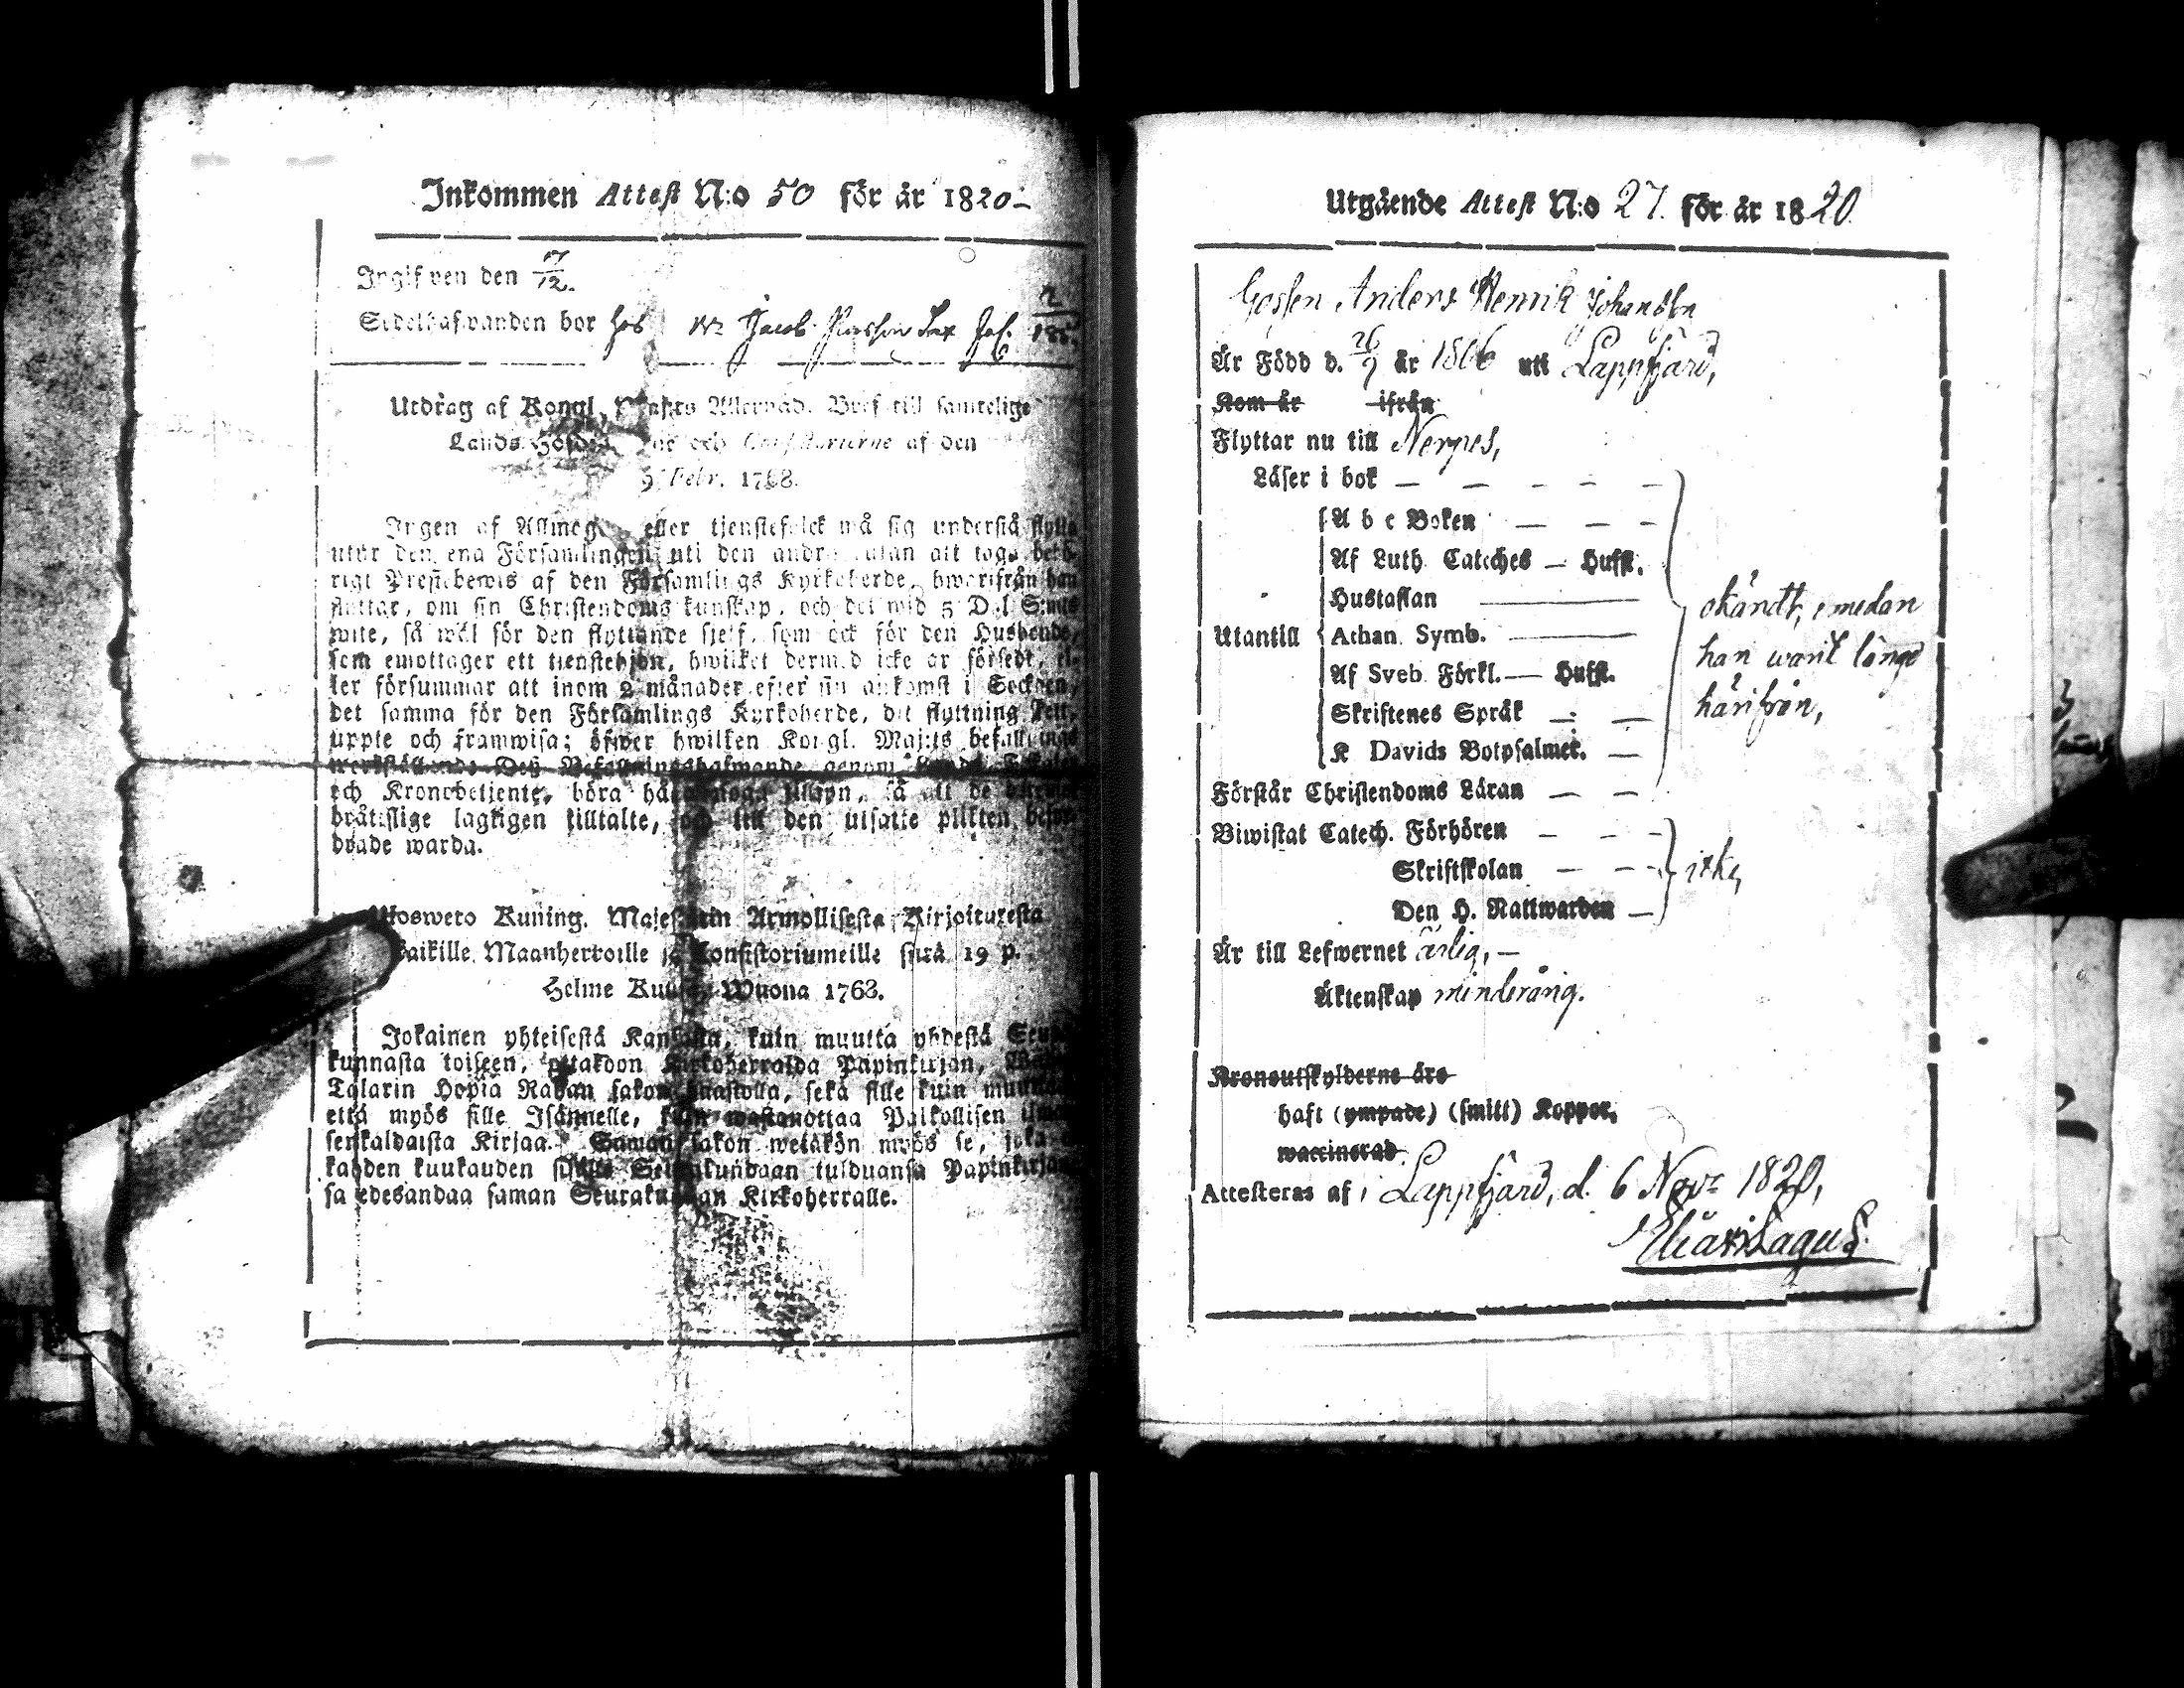 Inkommen Attest N:o 50 för år 1820 –
Ingifven den 7/12.
Sedelhafvanden bor hos Jacob
Utdrag af Kongl. Maj:ts Allernåd. Bref till samtelige
Lands-Höfd och Consistorierne af den
Febr. 1768.
Ingen af Allmog eller tjenstefolck må sig understå flytta
utur den ena Församlingen uti den andra utan att taga behö-
rigt Prestebewis af den Församlings Kyrkoherde, hwarifrån han
flyttar, om sin Christendoms kunskap, och det wid 5 Dal. S:mts
wite, så wäl för den flyttande sjelf, som ock för den Husbonde,
som emottager ett tienstehjon, hwilket dermed icke är försedt, el-
ler försummar att inom 2 månader efter sin ankomst i Socknen,
det samma för den Församlings Kyrkoherde, dit flyttning skett,
uppte och framwisa; öfwer hwilken Kongl. Maj:ts befallnings
werkställande Deß Befallningshafwande genom
och Kronobetjente, böra hå tillsyn, så att de
bråtslige lagligen tilltalte, och till den utsatte plikten befor-
drade warda.
Ulosweto Kuning. Majestetin Armollisesta Kirjoituxesta
kaikille Maanherroille ja Consistoriumeille siitä 19 p.
Helme Kuusa Wuona 1768.
Jokainen yhteisestä Kansasta, kuin muutta yhdestä Seura-
kunnasta toiseen, ottakoon Kirkoherralda Papinkirjan,
Talarin Hopia Rahan sakon haastolla, sekä sille kuin muutta
että myös sille Isännelle, kuin wastanottaa Palkollisen ilman
senkaldaista Kirjaa. Saman sakon wetäkön myös se, joka
kahden kuukauden sisällä Seurakundaan tulduansa Papinkirjan
sa edesandaa saman Seurakunnan Kirkoherralle.
Utgående Attest N:o 27. för år 1820.
Gossen Anders Henrik Johansson
Är Född d. 26/9 år 1806 uti Lappfjärd,
Kom år ifrån
Flyttar nu till Nerpes,
Läser i bok — — — — —
A b c Boken — — —
Af Luth. Catiches — Hufst.
Hustaflan
Utantill Athan. Symb.
Af Sveb. Förkl. — Hufst.
Skriftenes Språk — —
K Davids Botpsalmer. —
okändt, emedan
han warit länge
härifrån,
Förstår Christendoms Läran — —
Biwistat Catech. Förhören — — —
Skriftskolan — — —
Den H. Nattwarden —
icke,
Är till Lefwernet ärlig, —
Äktenskap minderårig.
Kronoutskylderne äro
haft (ympade) (smitt) Koppor,
waccinerad
Attesteras af, Lappfjärd, d. 6 Novr 1820,
Elias Lagus.